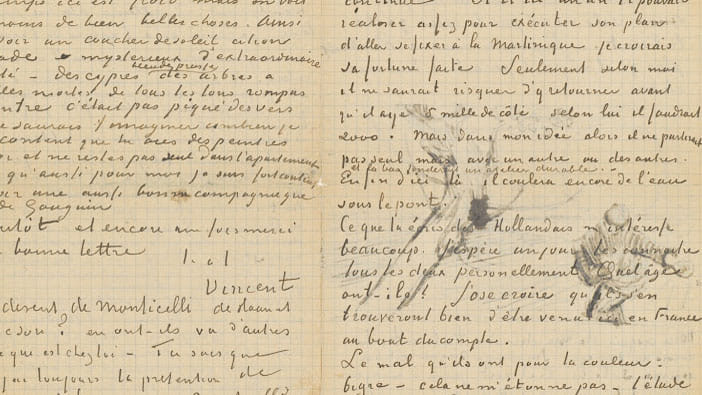 mons de bien belles choses. Ainsi
voir un coucher de soleil citron
mysterieux d'extraordinaire
des cyprès
des arbres a
feuilles mortes de tous les tons rompus
c'était pas piqué des vers
sauras t'imaginer combien je
content que tu aies des peintres
et ne restes pas seul dans l'appartement
qu'aussi pour moi je suis fort content
avoir une aussi bonne compagnie que
de Gauguin
et encore une fois merci
bonne lettre
t. à t.
Vincent
disent de Monticelli
en ont-ils vu d'autres
que chez toi – Tu sais que
j'ai toujours la prétention de
réaliser assez pour exécuter son plan
d'aller se fixer à la Martinique je croirais
sa fortune faite Seulement selon moi
il ne saurait risquer d'y retourner avant
qu'il aye 5 mille de côté. selon lui il faudrait
2000. Mais dans mon idée alors il ne partirait
pas seul mais avec un autre ou des autres.
et là bas fonderait un atelier durable.
Enfin d'ici là il coulera encore de l'eau
sous le pont.
Ce que tu écris des Hollandais m'intéresse
beaucoup. J'espère un jour les connaitre
tous les deux personellement Quel âge
ont-ils? J'ose croire qu'ils s'en
trouveront bien d'être venus ici en France
au bout du compte.
Le mal qu'ils ont pour la couleur:
bigre – cela ne m'étonne pas – l'étude